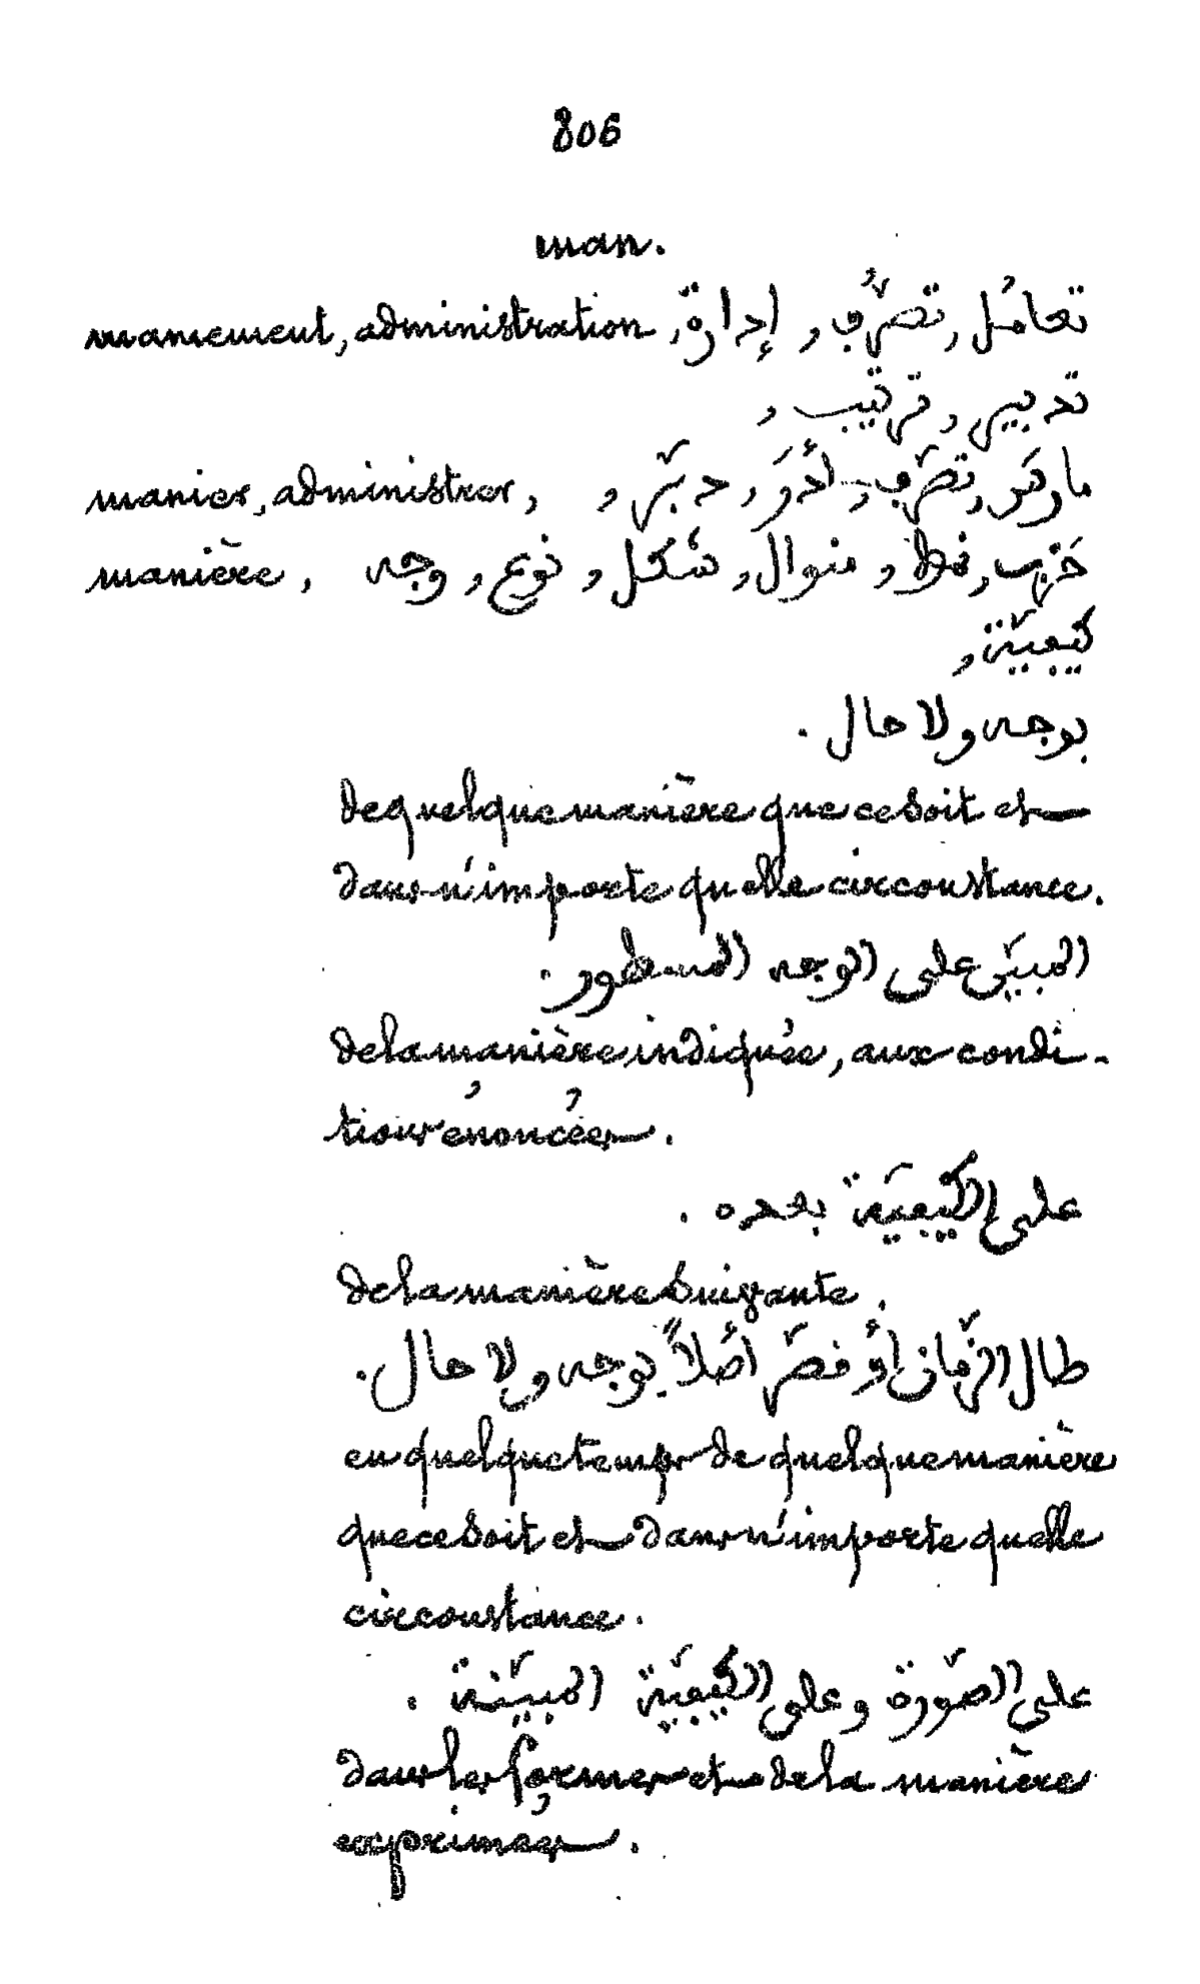 806
man.
maniement, administration, تعامُل, تصرُّف, إدارة,
تدبير, ترتيب,
manier, administrer, تصرّف, أدَوَ, دبّر,
manière, ضرب, نمط, منوال, شكل, نوع, وجه
كيفيّة,
بوجه ولا حال.
de quelque manière que ce soit et
dans n'importe quelle circonstance.
المبيّن على الوجه المسطور.
de la manière indiquée, aux condi-
tions énoncées.
على الكيفيّة بعده.
de la manière suivante.
طال الزّمان أو قصّر أصلاً بوجه ولا حال.
en quelque temps de quelque manière
que ce soit et dans n'importe quelle
circonstance.
على الصّورة وعلى الكيفيّة المبيّنة.
dans les formes et de la manière
exprimées.